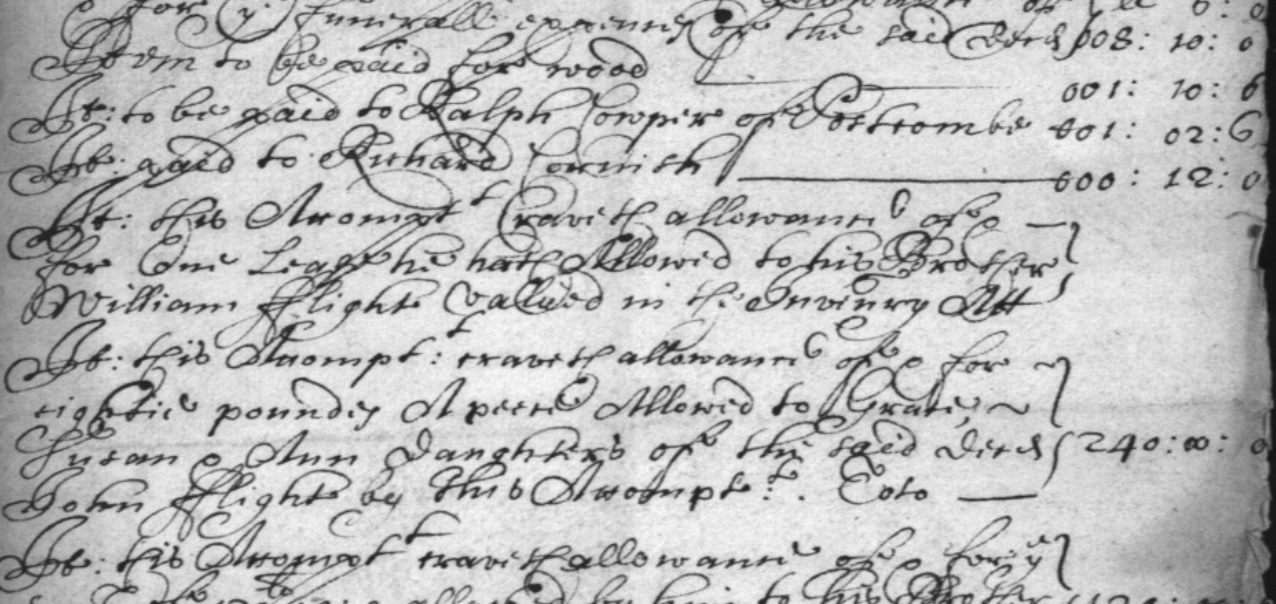 for ye funerall expences of the said decd 008: 10: 0
Item to be paid for wood 001: 10: 6
It: to be paid to Ralph Cowper of Postcombe 001: 02: 6
It: paid to Richard Cornish 000: 12: 0
It: this Accomptt Craveth allowance of &
for one Lease he hath Allowed to his Brother
William fflight Vallued in the Invenry Att
It: this Accomptt: craveth allowance of & for
eightie poundes A peece Allowed to Grace
Susan & Ann Daughters of the said decd 240: 00: 0
John fflight by this Accomptt. Toto
It: this Accomptt craveth allowance of & for ye
allowed by him to his Brother